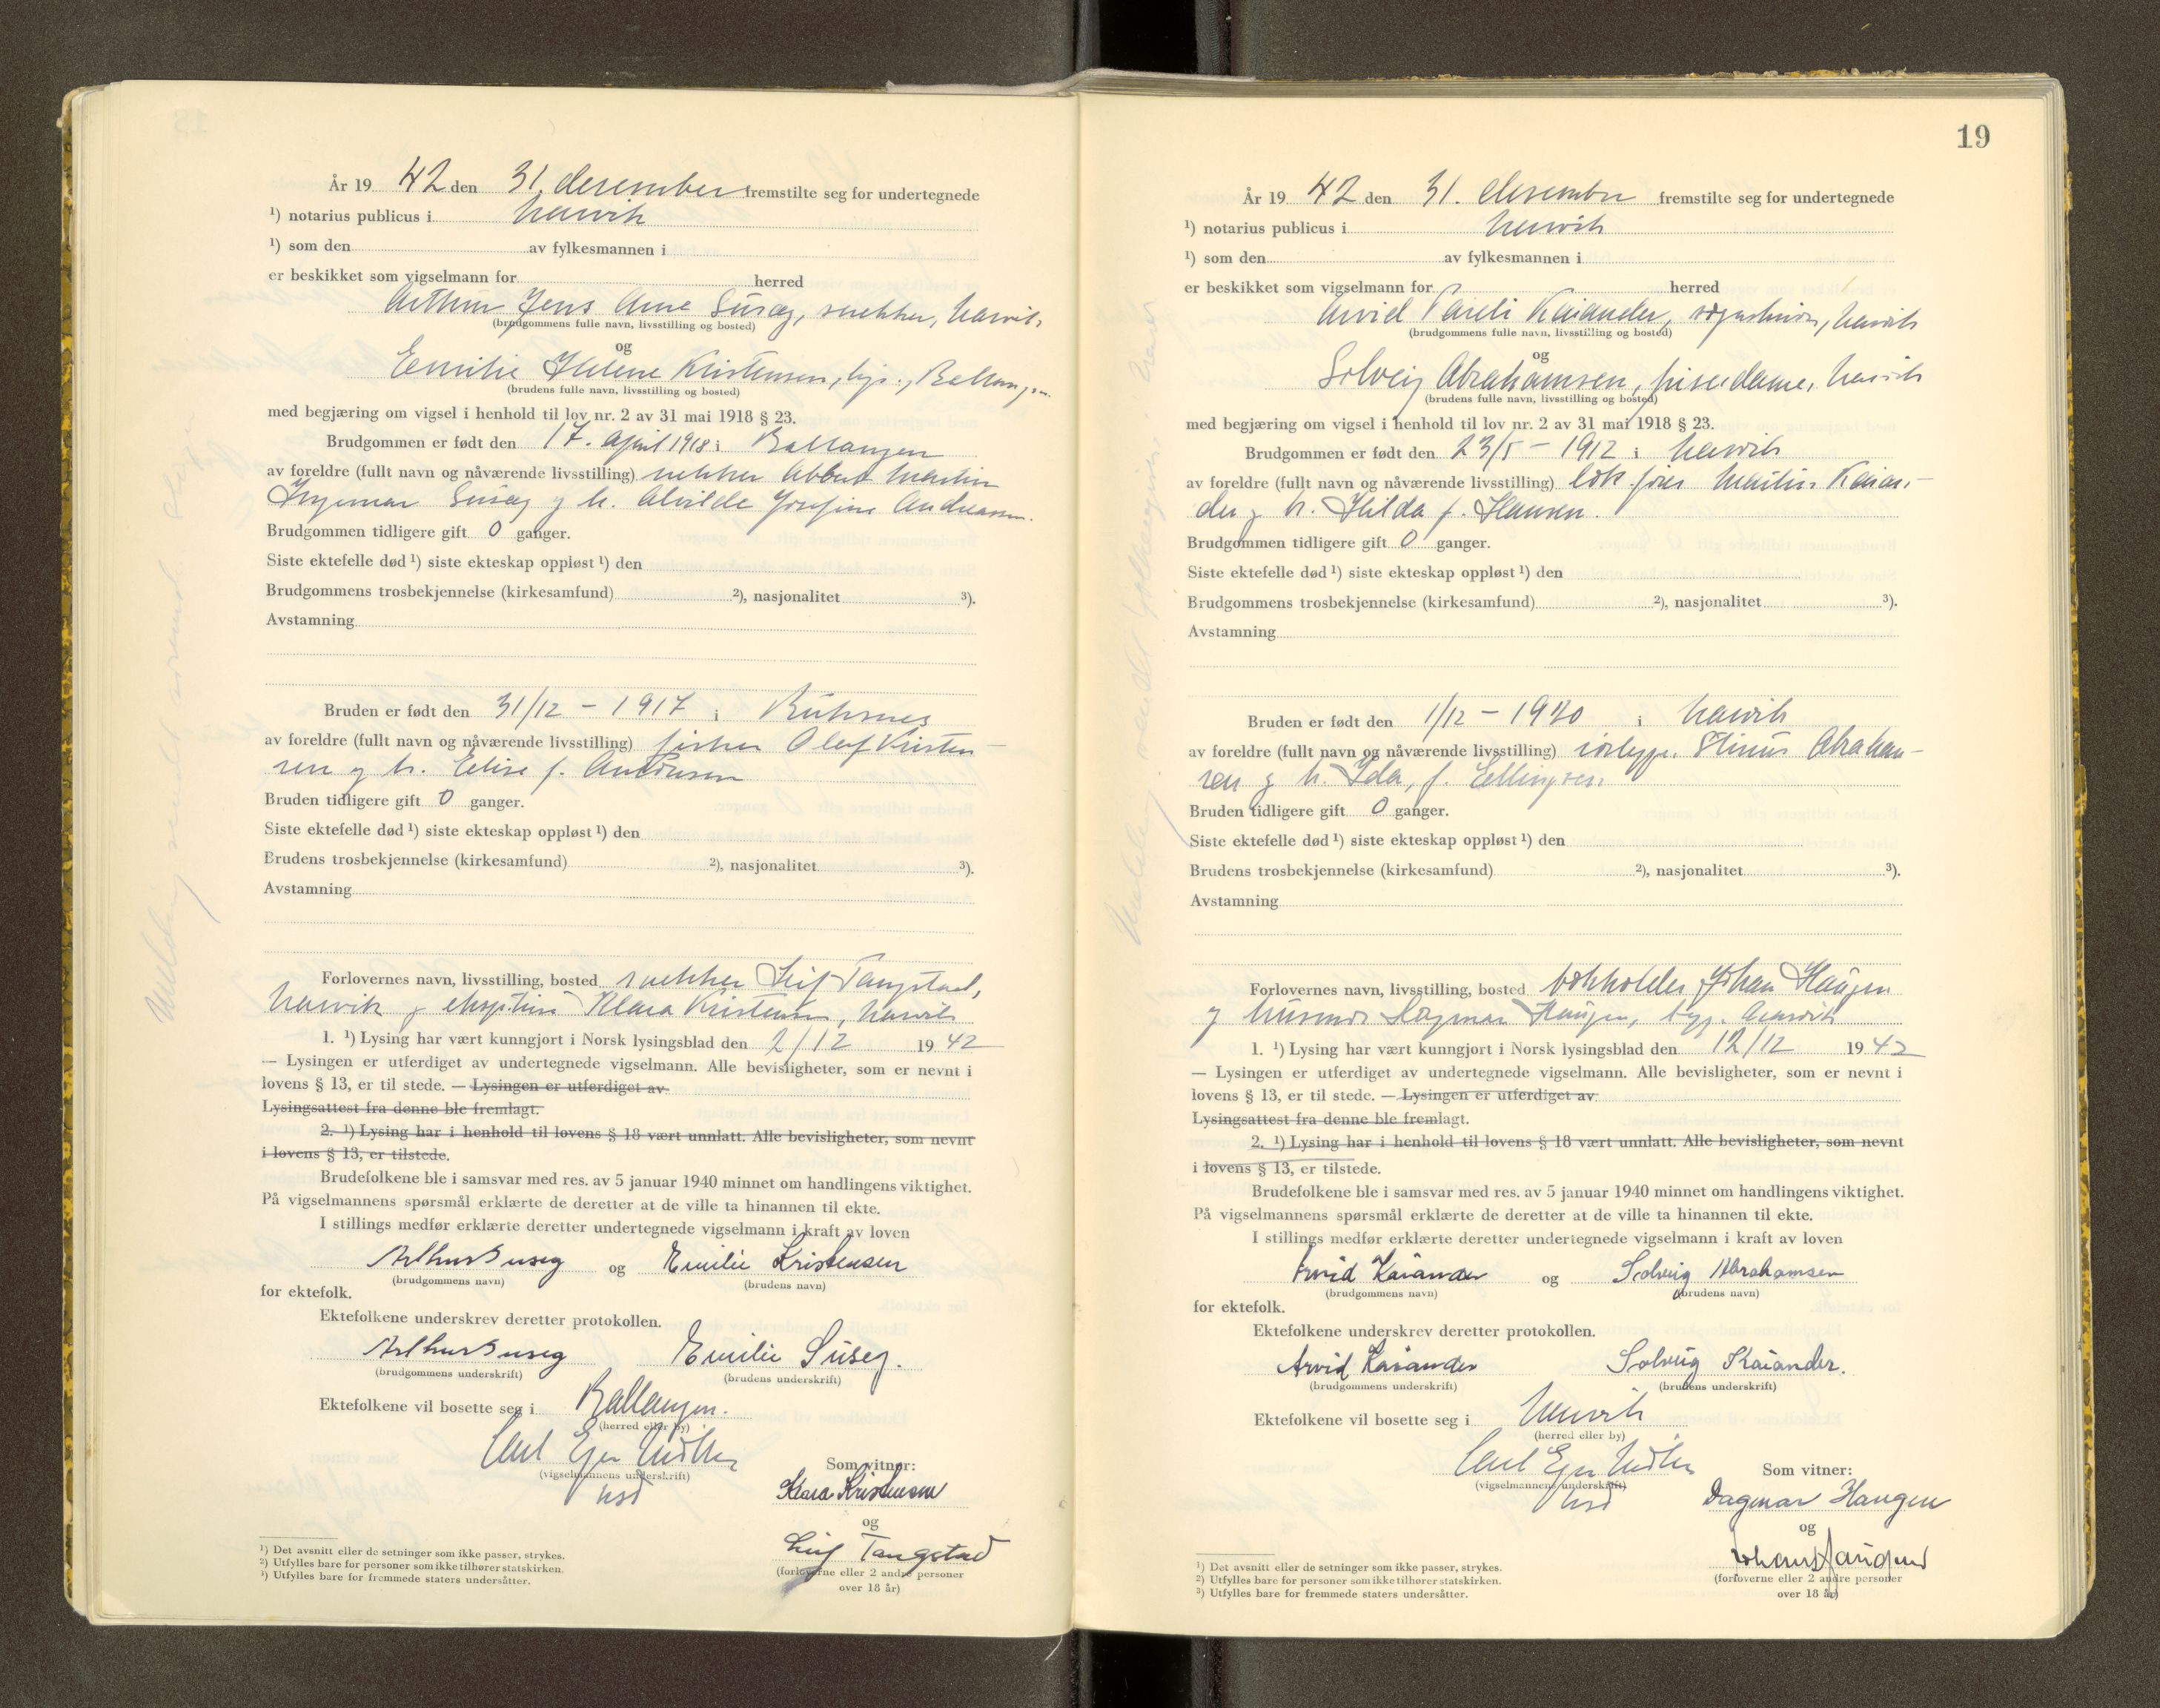 År 19 42 den 31. desember fremstilte seg for undertegnede
¹) notarius publicus i Narvik
¹) som den av fylkesmannen i
er beskikket som vigselmann for herred
Arthur Jens Arne Suseg, snekker, Narvik
(brudgommens fulle navn, livsstilling og bosted)
og
Emilie Helene Kristensen, hjs., Ballangen
(brudens fulle navn, livsstilling og bosted)
med begjæring om vigsel i henhold til lov nr. 2 av 31 mai 1918 § 23.
Brudgommen er født den 17. april 1918 i Ballangen
av foreldre (fullt navn og nåværende livsstilling) snekker Martin
Ingemar Suseg g h. Alvilde Josefine Andreassen.
Brudgommen tidligere gift 0 ganger.
Siste ektefelle død ¹) siste ekteskap oppløst ¹) den
Brudgommens trosbekjennelse (kirkesamfund) ²), nasjonalitet ³).
Avstamning
Bruden er født den 31/12 - 1917 i
av foreldre (fullt navn og nåværende livsstilling) fisker Olaf Kristen-
sen g h. Elise f.
Bruden tidligere gift 0 ganger.
Siste ektefelle død ¹) siste ekteskap oppløst ¹) den
Brudens trosbekjennelse (kirkesamfund) ²), nasjonalitet ³).
Avstamning
Forlovernes navn, livsstilling, bosted snekker Leif Tangstad,
Narvik g Klara Kristensen, Narvik
1. ¹) Lysing har vært kunngjort i Norsk lysingsblad den 2/12 19 42
— Lysingen er utferdiget av undertegnede vigselmann. Alle bevisligheter, som er nevnt i
lovens § 13, er til stede. — Lysingen er utferdiget av
Lysingsattest fra denne ble fremlagt.
2. ¹) Lysing har i henhold til lovens § 18 vært unnlatt. Alle bevisligheter, som nevnt
i lovens § 13, er tilstede.
Brudefolkene ble i samsvar med res. av 5 januar 1940 minnet om handlingens viktighet.
På vigselmannens spørsmål erklærte de deretter at de ville ta hinannen til ekte.
I stillings medfør erklærte deretter undertegnede vigselmann i kraft av loven
Arthur Suseg og Emilie Kristensen
(brudgommens navn) (brudens navn)
for ektefolk.
Ektefolkene underskrev deretter protokollen.
Arthur Suseg Emilie Suseg.
(brudgommens underskrift) (brudens underskrift)
Ektefolkene vil bosette seg i Ballangen.
(herred eller by)
Carl
(vigselmannens underskrift)
Som vitner:
Klara Kristensen
og
Leif Tangstad
(forloverne eller 2 andre personer
over 18 år)
¹) Det avsnitt eller de setninger som ikke passer, strykes.
²) Utfylles bare for personer som ikke tilhører statskirken.
³) Utfylles bare for fremmede staters undersåtter.
19
År 19 42 den 31. desember fremstilte seg for undertegnede
¹) notarius publicus i Narvik
¹) som den av fylkesmannen i
er beskikket som vigselmann for herred
Arvid Pareli Kaiander, Narvik
(brudgommens fulle navn, livsstilling og bosted)
og
Solveig Abrahamsen, frisердame, Narvik
(brudens fulle navn, livsstilling og bosted)
med begjæring om vigsel i henhold til lov nr. 2 av 31 mai 1918 § 23.
Brudgommen er født den 23/5 - 1912 i Narvik
av foreldre (fullt navn og nåværende livsstilling) lok.fører Martin Kaian-
der g h. Hilda f. Hansen.
Brudgommen tidligere gift 0 ganger.
Siste ektefelle død ¹) siste ekteskap oppløst ¹) den
Brudgommens trosbekjennelse (kirkesamfund) ²), nasjonalitet ³).
Avstamning
Bruden er født den 1/12 - 1920 i Narvik
av foreldre (fullt navn og nåværende livsstilling) rørlegger Abraham-
sen g h. Ida, f. Ellingsen
Bruden tidligere gift 0 ganger.
Siste ektefelle død ¹) siste ekteskap oppløst ¹) den
Brudens trosbekjennelse (kirkesamfund) ²), nasjonalitet ³).
Avstamning
Forlovernes navn, livsstilling, bosted bokholder Johan Haugen
g husmor Dagmar Haugen, begge Narvik
1. ¹) Lysing har vært kunngjort i Norsk lysingsblad den 12/12 19 42
— Lysingen er utferdiget av undertegnede vigselmann. Alle bevisligheter, som er nevnt i
lovens § 13, er til stede. — Lysingen er utferdiget av
Lysingsattest fra denne ble fremlagt.
2. ¹) Lysing har i henhold til lovens § 18 vært unnlatt. Alle bevisligheter, som nevnt
i lovens § 13, er tilstede.
Brudefolkene ble i samsvar med res. av 5 januar 1940 minnet om handlingens viktighet.
På vigselmannens spørsmål erklærte de deretter at de ville ta hinannen til ekte.
I stillings medfør erklærte deretter undertegnede vigselmann i kraft av loven
Arvid Kaiander og Solveig Abrahamsen
(brudgommens navn) (brudens navn)
for ektefolk.
Ektefolkene underskrev deretter protokollen.
Arvid Kaiander Solveig Kaiander.
(brudgommens underskrift) (brudens underskrift)
Ektefolkene vil bosette seg i Narvik
(herred eller by)
Carl
(vigselmannens underskrift)
Som vitner:
Dagmar Haugen
og
Johan Haugen
(forloverne eller 2 andre personer
over 18 år)
¹) Det avsnitt eller de setninger som ikke passer, strykes.
²) Utfylles bare for personer som ikke tilhører statskirken.
³) Utfylles bare for fremmede staters undersåtter.